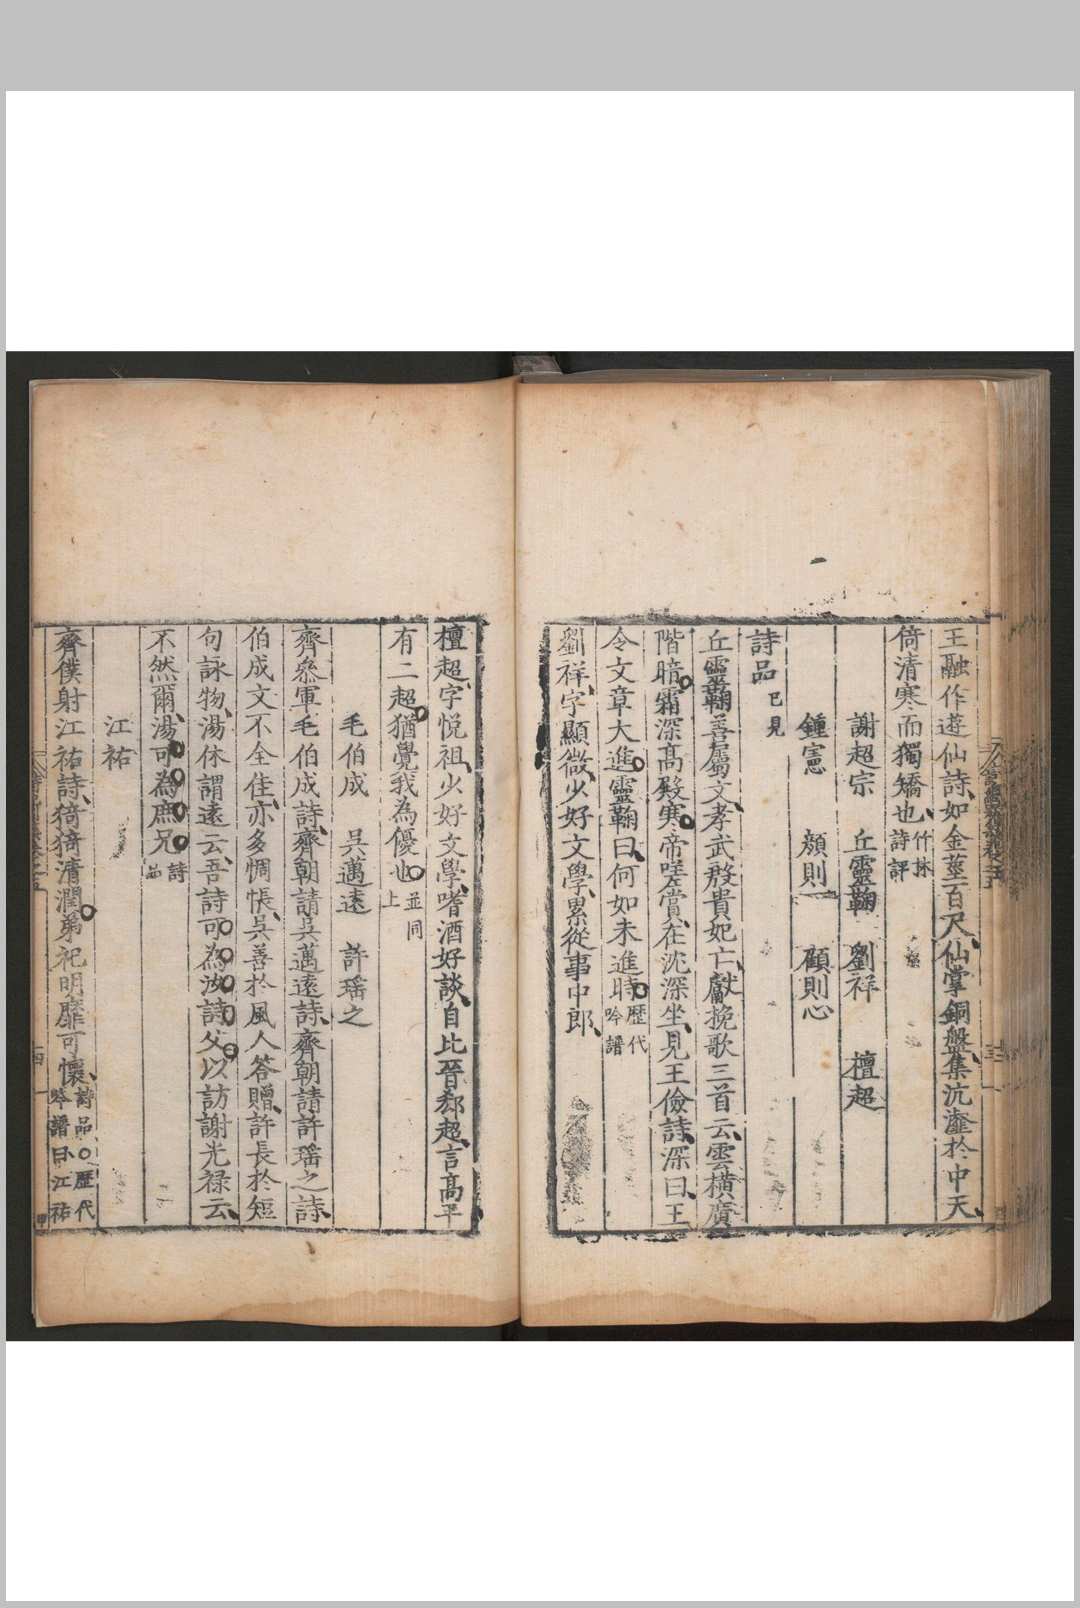 王融作遊仙詩如金莖百尺仙掌銅盤集沆瀣於中天
倚清寒而獨矯也竹林詩評
謝超宗 丘靈鞠 劉祥 檀超
鍾憲 顔則 顧則心
詩品已見
丘靈鞠善屬文孝武殷貴妃亡獻挽歌三首云雲橫廣
階暗霜深高殿寒帝嗟賞在沈深坐見王儉詩深曰王
令文章大進靈鞠曰何如未進時歷代吟譜
劉祥字顯微少好文學累從事中郎
檀超字悅祖少好文學嗜酒好談自比晉郄超言高平
有二超猶覺我為優也並同上
毛伯成 吳邁遠 許瑤之
齊叅軍毛伯成詩齊朝請吳邁遠詩齊朝請許瑤之詩
伯成文不全佳亦多惆悵吳善於風人答贈許長於短
句詠物湯休謂遠云吾詩可為汝詩父以訪謝光祿云
不然爾湯可為庶兄詩品
江祐
齊僕射江祐詩猗猗清潤弟祀明靡可懷詩品○歷代吟譜曰江祐